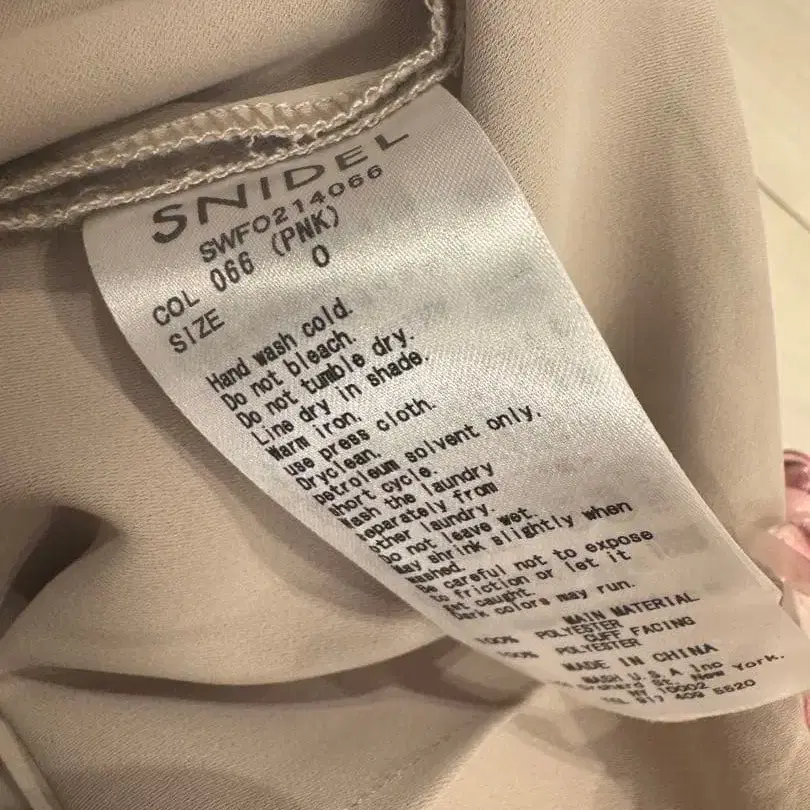 SNIDEL
SWFO214066
COL 066 (PNK)
SIZE 0
Hand wash cold.
Do not bleach.
Do not tumble dry.
Line dry in shade.
Warm iron.
use press cloth.
Dryclean.
petroleum solvent only.
short cycle.
Wash the laundry
separately from
other laundry.
Do not leave wet.
May shrink slightly when
washed.
Be careful not to expose
to friction or let it
get caught.
Dark colors may run.
MAIN MATERIAL
100% POLYESTER
CUFF FACING
100% POLYESTER
MADE IN CHINA
MASH U.S.A Inc
Orchard St. New York.
NY 10002
917 409 5520